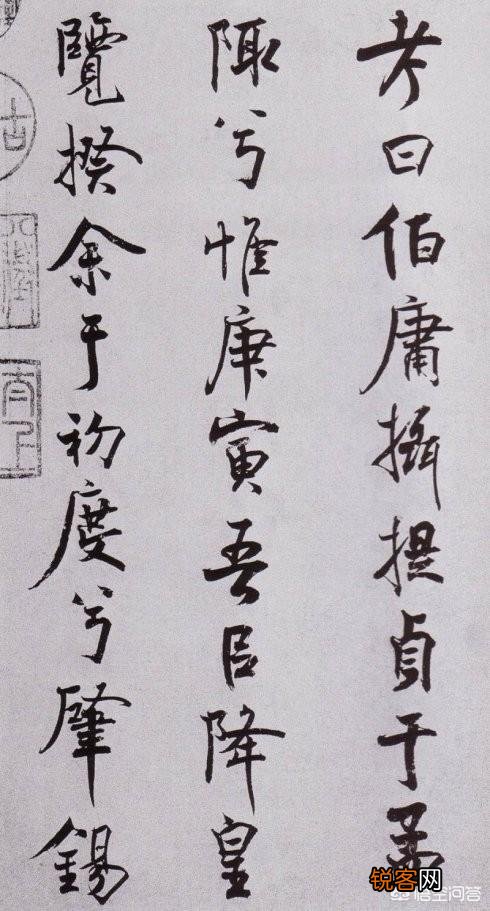 考曰伯庸攝提貞于孟
陬兮惟庚寅吾㠯降皇
覽揆余于初度兮肇錫
古
锐客网
悟空问答